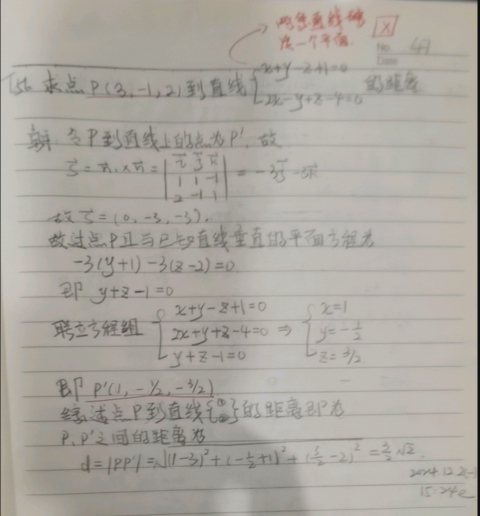 两条直线确
定一个平面.
No. 47
Date
求点P(3,-1,2)到直线{x+y-z+1=0
2x-y+z-4=0 的距离
解:令P到直线上的点为P′,故
s⃗=n⃗₁×n⃗=|i⃗ j⃗ k⃗
1 1 -1
2 -1 1|=-3j⃗-3k⃗
故s⃗=(0,-3,-3).
故过点P且与已知直线垂直的平面方程为
-3(y+1)-3(z-2)=0
即 y+z-1=0
联立方程组{x+y-z+1=0
2x+y+z-4=0
y+z-1=0 ⇒ {x=1
y=-1/2
z=3/2
即P′(1,-1/2,-3/2)
综述点P到直线{ }的距离即为
P,P′之间的距离为
d=|PP′|=√(1-3)²+(-1/2+1)²+(3/2-2)²=3/2√2.
2024.12.2
15:24